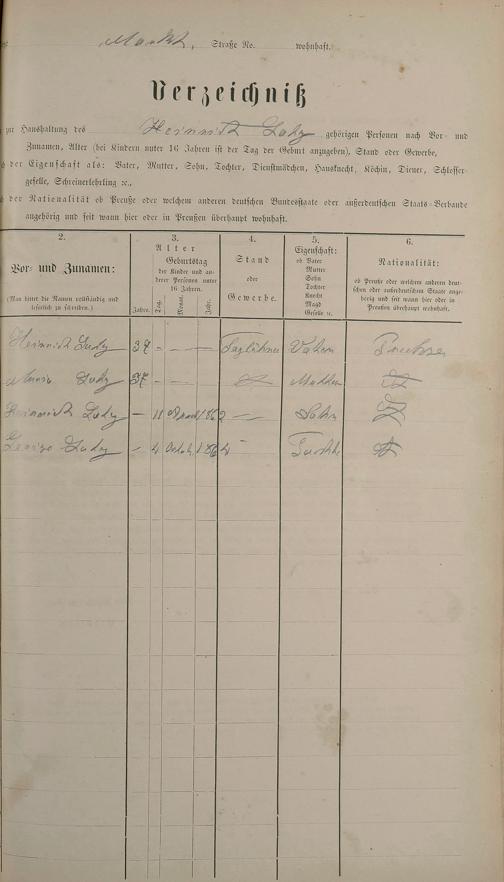 Markt, Straße No. wohnhaft.
Verzeichniß
zur Haushaltung des Heinrich Ludy gehörigen Personen nach Vor- und
Zunamen, Alter (bei Kindern unter 16 Jahren ist der Tag der Geburt anzugeben), Stand oder Gewerbe,
der Eigenschaft als: Vater, Mutter, Sohn, Tochter, Dienstmädchen, Hausknecht, Köchin, Diener, Schlosser-
geselle, Schreinerlehrling ꝛc.,
der Nationalität ob Preuße oder welchem anderen deutschen Bundesstaate oder außerdeutschen Staats-Verbande
angehörig und seit wann hier oder in Preußen überhaupt wohnhaft.
2.
Vor- und Zunamen:
(Man bittet die Namen vollständig und
leserlich zu schreiben.)
3.
Alter
Geburtstag
der Kinder und an-
derer Personen unter
16 Jahren.
Jahre.
Tag.
Monat.
Jahr.
4.
Stand
oder
Gewerbe.
5.
Eigenschaft:
ob Vater
Mutter
Sohn
Tochter
Knecht
Magd
Geselle ꝛc.
6.
Nationalität:
ob Preuße oder welchem anderen deut-
schen oder außerdeutschen Staate ange-
hörig und seit wann hier oder in
Preußen überhaupt wohnhaft.
Heinrich Ludy 37 - - - Taglöhner Vater Preuße
Ludy 37 - - - Mutter
Heinrich Ludy - 11 1862 - Sohn
Ludy - 4 Octob. 1864 -